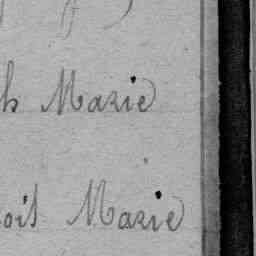 h Marie
ois Marie